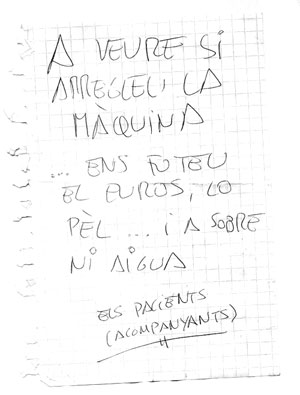 A VEURE SI
ARREGLEU LA
MÀQUINA
... ENS FOTEU
EL EUROS, LO
PÈL ... I A SOBRE
NI AIGUA
ELS PACIENTS
(ACOMPANYANTS)